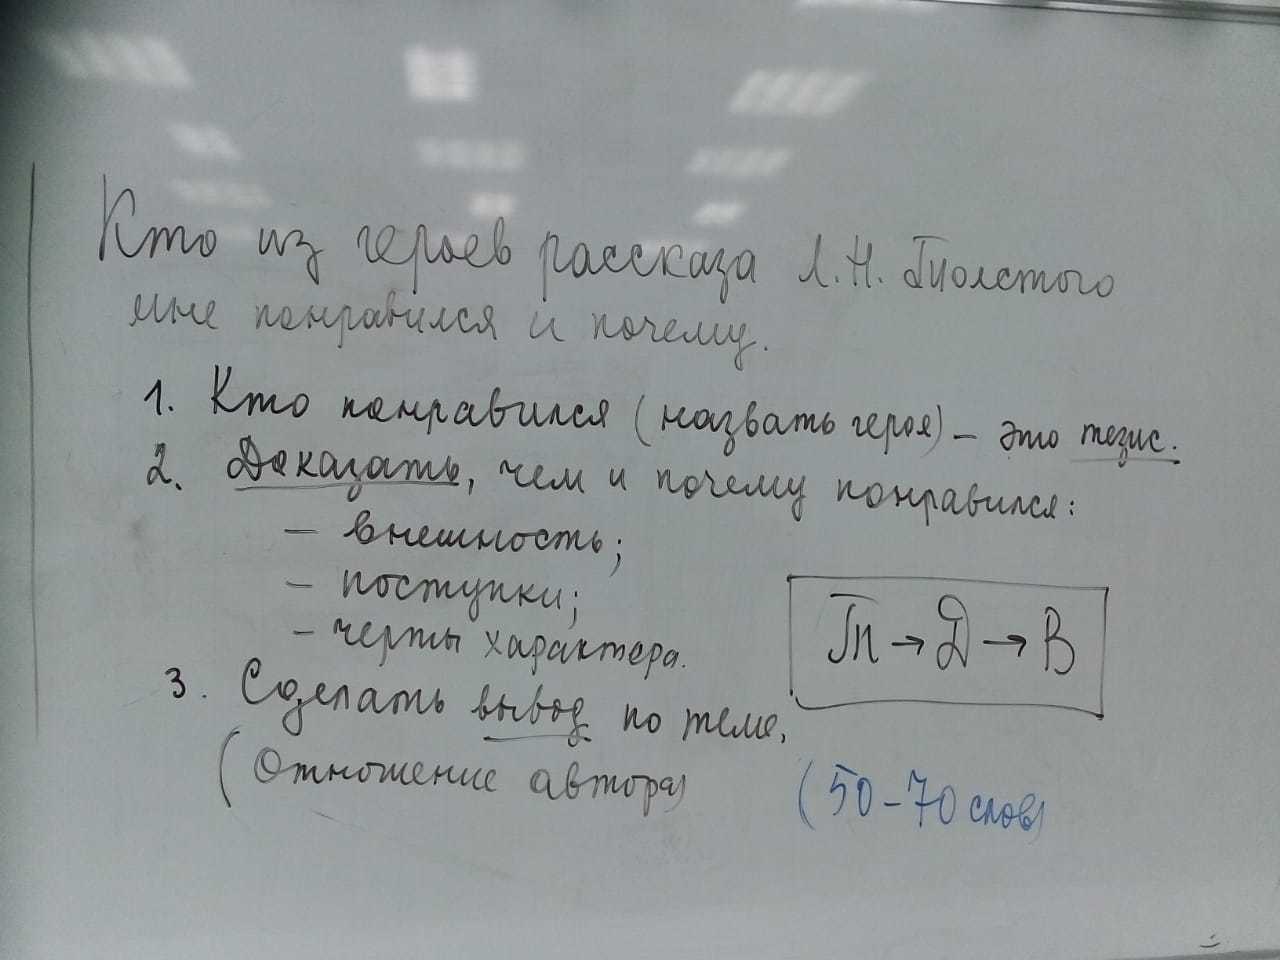 Кто из героев рассказа Л.Н. Толстого
мне понравился и почему.
1. Кто понравился (назвать героя) – это тезис.
2. Доказать, чем и почему понравился:
– внешность;
– поступки;
– черты характера.
Т → Д → В
3. Сделать вывод по теме,
(Отношение автора)
(50-70 слов)